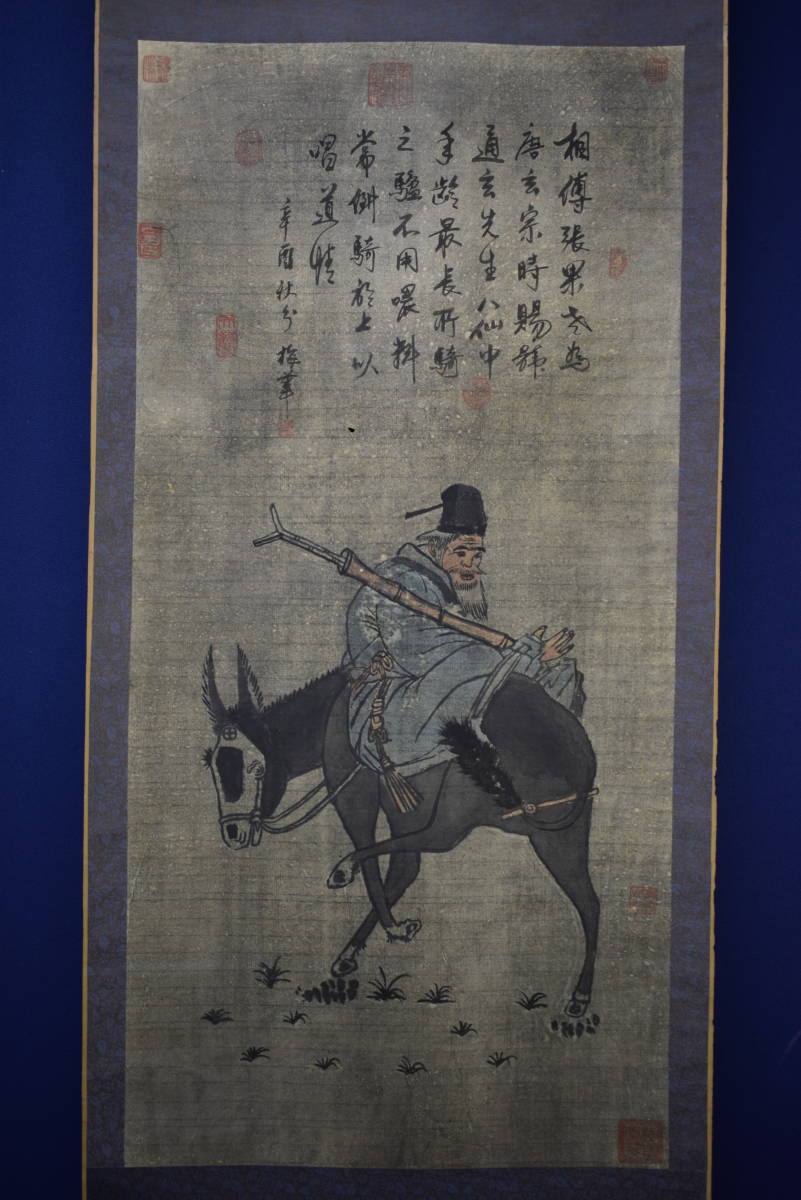 相傳張果老為
唐玄宗時賜號
通玄先生八仙中
年齡最長所騎
之驢不用喂料
常倒騎於上以
唱道情
辛酉秋分